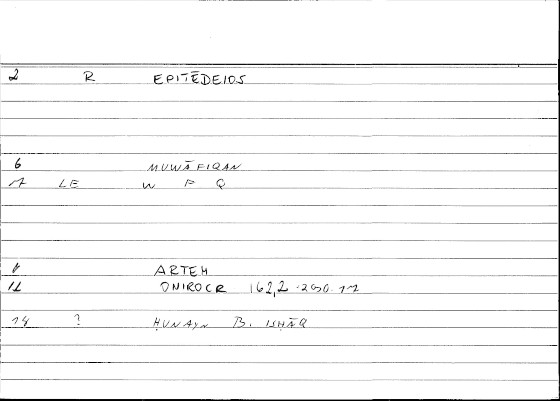 2 R EPITĒDEIOS
6 MUWĀFIQAN
7 LE W F Q
ARTEM
11 ONIROCR 162,2 250.12
14 ? ḤUNAYN B. ISḤĀQ